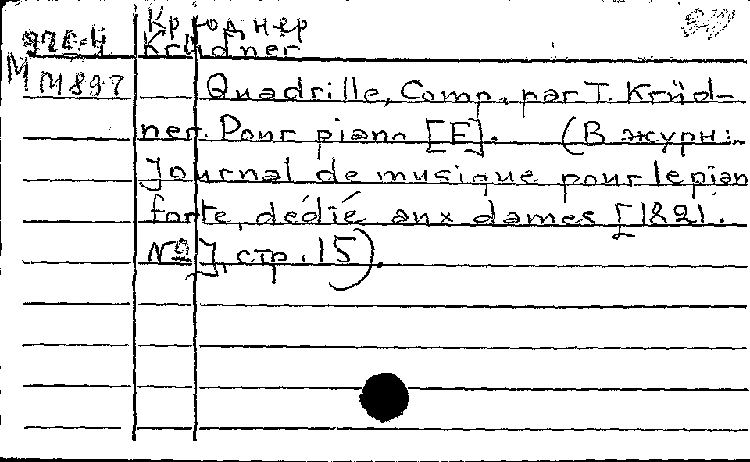 Крюднер
Krüdner
M M897
Quadrille, Comp. par T. Krüd-
ner. Pour piano [E]. (В журн:
Journal de musique pour le pian
forte, dédié aux dames [1821.
№], стр. 15).